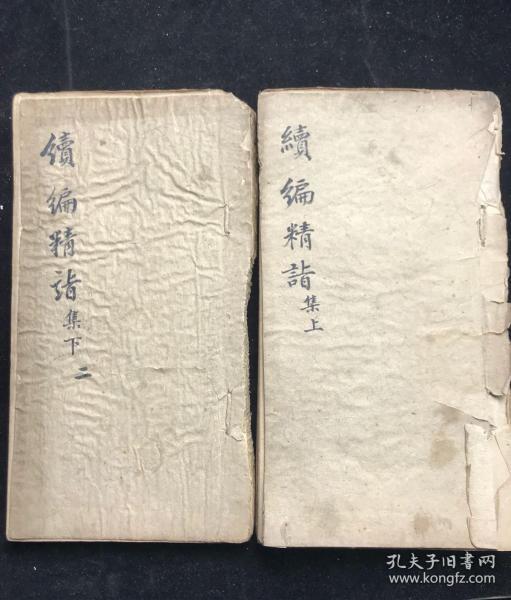 續編精詣集上
續編精詣集下 二
孔夫子旧书网
www.kongfz.com